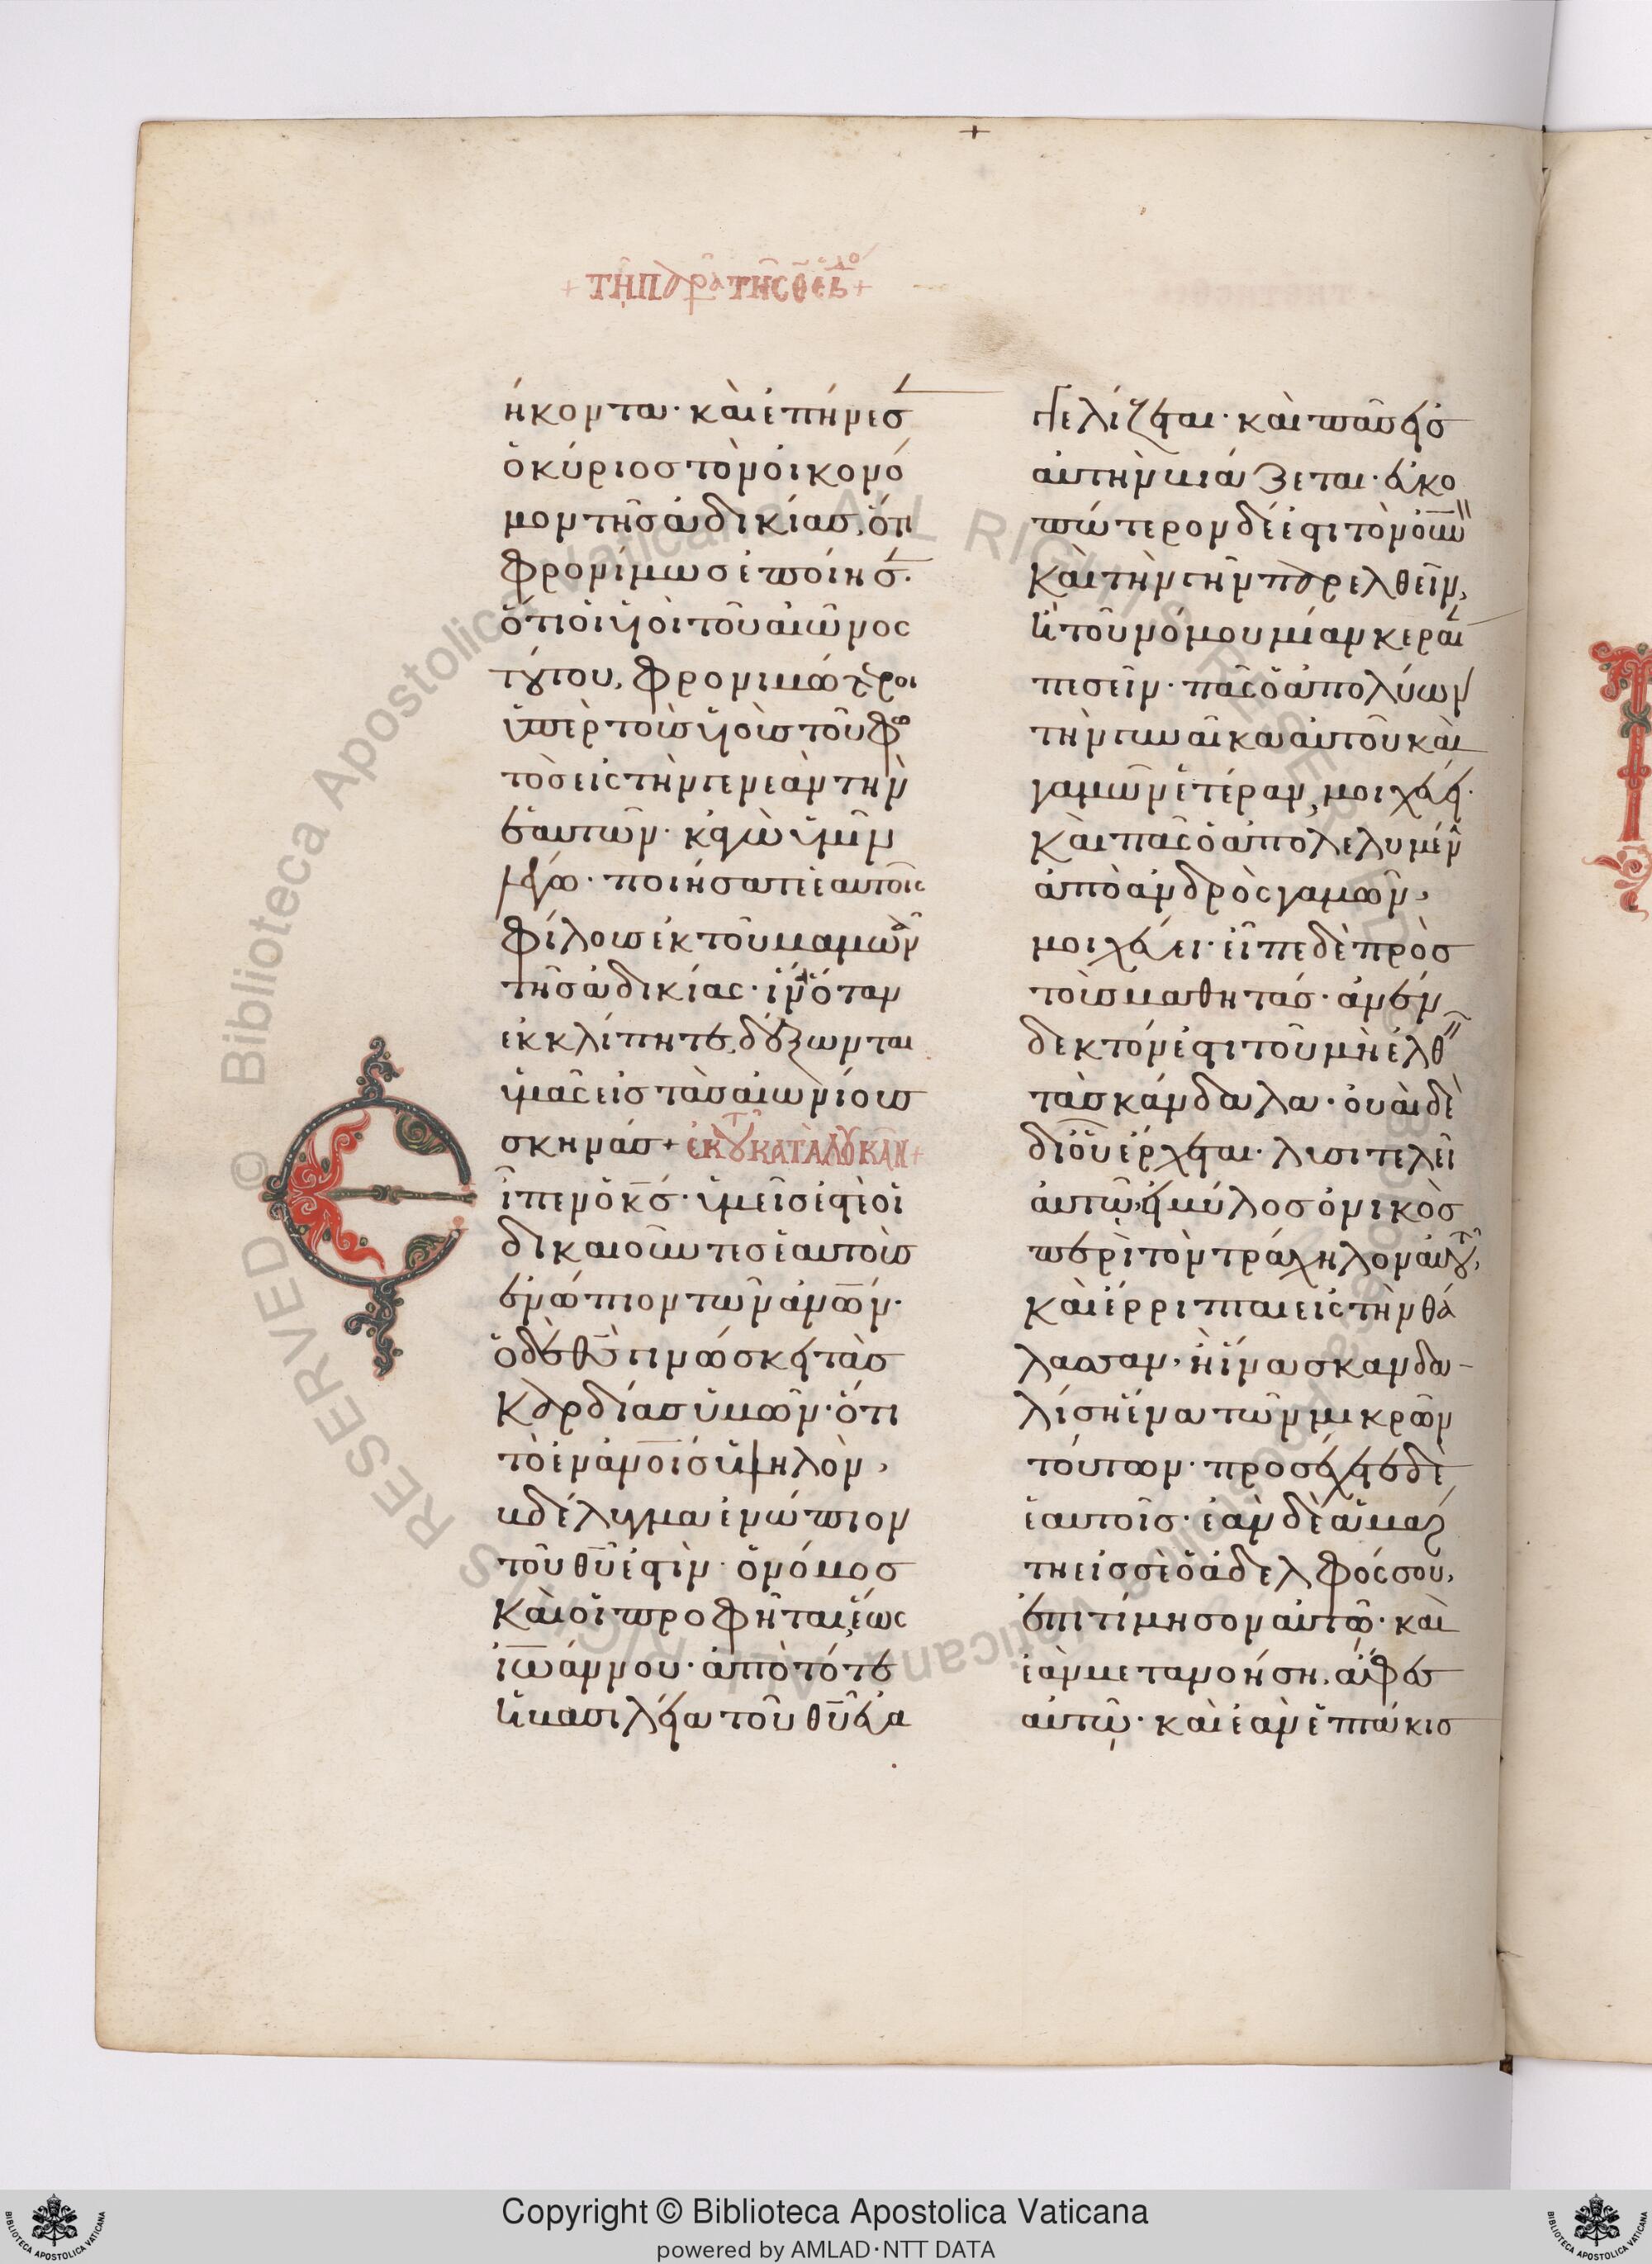 + τῆ παρα τῆς θ εβ +
ήκοντα· καὶ ἐπήνεσ
ὁ κύριος τὸν οἰκονό
μον τῆς ἀδικίας, ὅτι
φρονίμως ἐποίησ·
ὅτι οἱ υἱοὶ τοῦ αἰῶνος
τούτου, φρονιμώτεροι
ὑπὲρ τοὺς υἱοὺς τοῦ φω
τὸς εἰς τὴν γενεὰν τὴν
ἑαυτῶν· κἀγὼ ὑμῖν
λέγω· ποιήσατε ἑαυτοῖς
φίλους ἐκ τοῦ μαμωνᾶ
τῆς ἀδικίας· ἵνα ὅταν
ἐκλίπητε, δέξωνται
ὑμᾶς εἰς τὰς αἰωνίους
σκηνάς + ἐκ τοῦ κατὰ λουκᾶν +
Εἶπεν ὁ κς· ὑμεῖς ἐστὲ οἱ
δικαιοῦντες ἑαυτοὺς
ἐνώπιον τῶν ἀνων·
ὁ δὲ θς γινώσκει τὰς
καρδίας ὑμῶν· ὅτι
τὸ ἐν ἀνοις ὑψηλὸν,
βδέλυγμα ἐνώπιον
τοῦ θυ ἐστὶν· ὁ νόμος
καὶ οἱ προφῆται, ἕως
ἰωάννου· ἀπὸ τότε
ἡ βασιλεία τοῦ θυ εὐα
γγελίζεται· καὶ πᾶς εἰς
αὐτὴν βιάζεται· εὐκο
πώτερον δέ ἐστι τὸν οὐνον
καὶ τὴν γῆν παρελθεῖν,
ἢ τοῦ νόμου μίαν κεραί
πεσεῖν· πᾶς ὁ ἀπολύων
τὴν γυναῖκα αὐτοῦ καὶ
γαμῶν ἑτέραν, μοιχεύει·
καὶ πᾶς ὁ ἀπολελυμένην
ἀπὸ ἀνδρὸς γαμῶν,
μοιχεύει· εἶπε δὲ πρὸς
τοὺς μαθητάς· ἀνέν
δεκτόν ἐστι τοῦ μὴ ἐλθεῖν
τὰ σκάνδαλα· οὐαὶ δὲ
δι' οὗ ἔρχεται· λυσιτελεῖ
αὐτῷ, εἰ μύλος ὀνικὸς
περὶ τὸν τράχηλον αὐτοῦ,
καὶ ἔρριπται εἰς τὴν θά
λασσαν, ἢ ἵνα σκανδα-
λίσῃ ἕνα τῶν μικρῶν
τούτων· προσέχετε δὲ
ἑαυτοῖς· ἐὰν δὲ ἁμάρ
τῃ εἰς σὲ ὁ ἀδελφός σου,
ἐπιτίμησον αὐτῷ· καὶ
ἐὰν μετανοήσῃ, ἄφες
αὐτῷ· καὶ ἐὰν ἑπτάκις
Copyright © Biblioteca Apostolica Vaticana
powered by AMLAD·NTT DATA